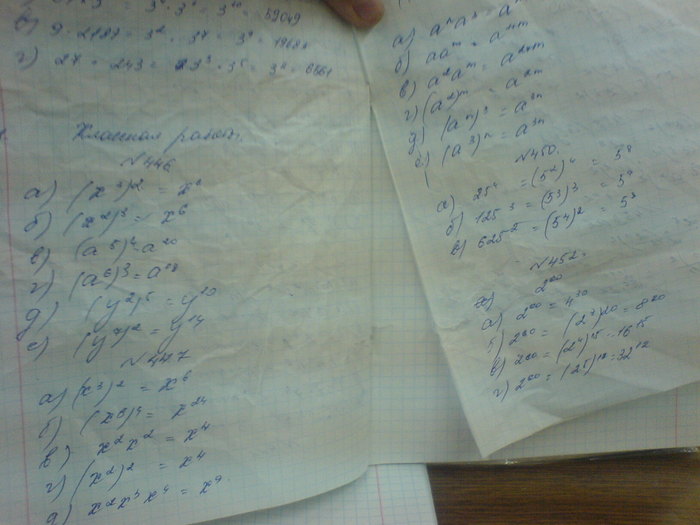 в) 9 · 2187 = 3² · 3⁷ = 3⁹ = 19683
г) 27 · 243 = 3³ · 3⁵ = 3⁸ = 6561
Классная работа.
№446
а) (x³)² = x⁶
б) (x²)³ = x⁶
в) (a⁵)⁴ = a²⁰
г) (a⁶)³ = a¹⁸
д) (y²)⁵ = y²⁰
е) (y⁷)² = y¹⁴
№447
а) (x³)² = x⁶
б)
в) x²x² = x⁴
г) (x²)² = x⁴
д) x²x³x⁴ = x⁹.
а) aⁿa³ = a
б) aaᵐ =
в) a²aᵐ = a²⁺ᵐ
г) (a²)ᵐ = a²ᵐ
д) (aⁿ)³ = a³ⁿ
е) (a³)ⁿ = a³ⁿ
№450.
а) 25⁴ = (5²)⁴ = 5⁸
б) 125³ = (5³)³ = 5⁹
в) 625² = (5⁴)² = 5⁸
№452.
2⁶⁰
а) 2⁶⁰ = 4³⁰
б) 2⁶⁰ = (2³)²⁰ = 8²⁰
в) 2⁶⁰ = (2⁴)¹⁵ = 16¹⁵
г) 2⁶⁰ = (2⁵)¹² = 32¹²